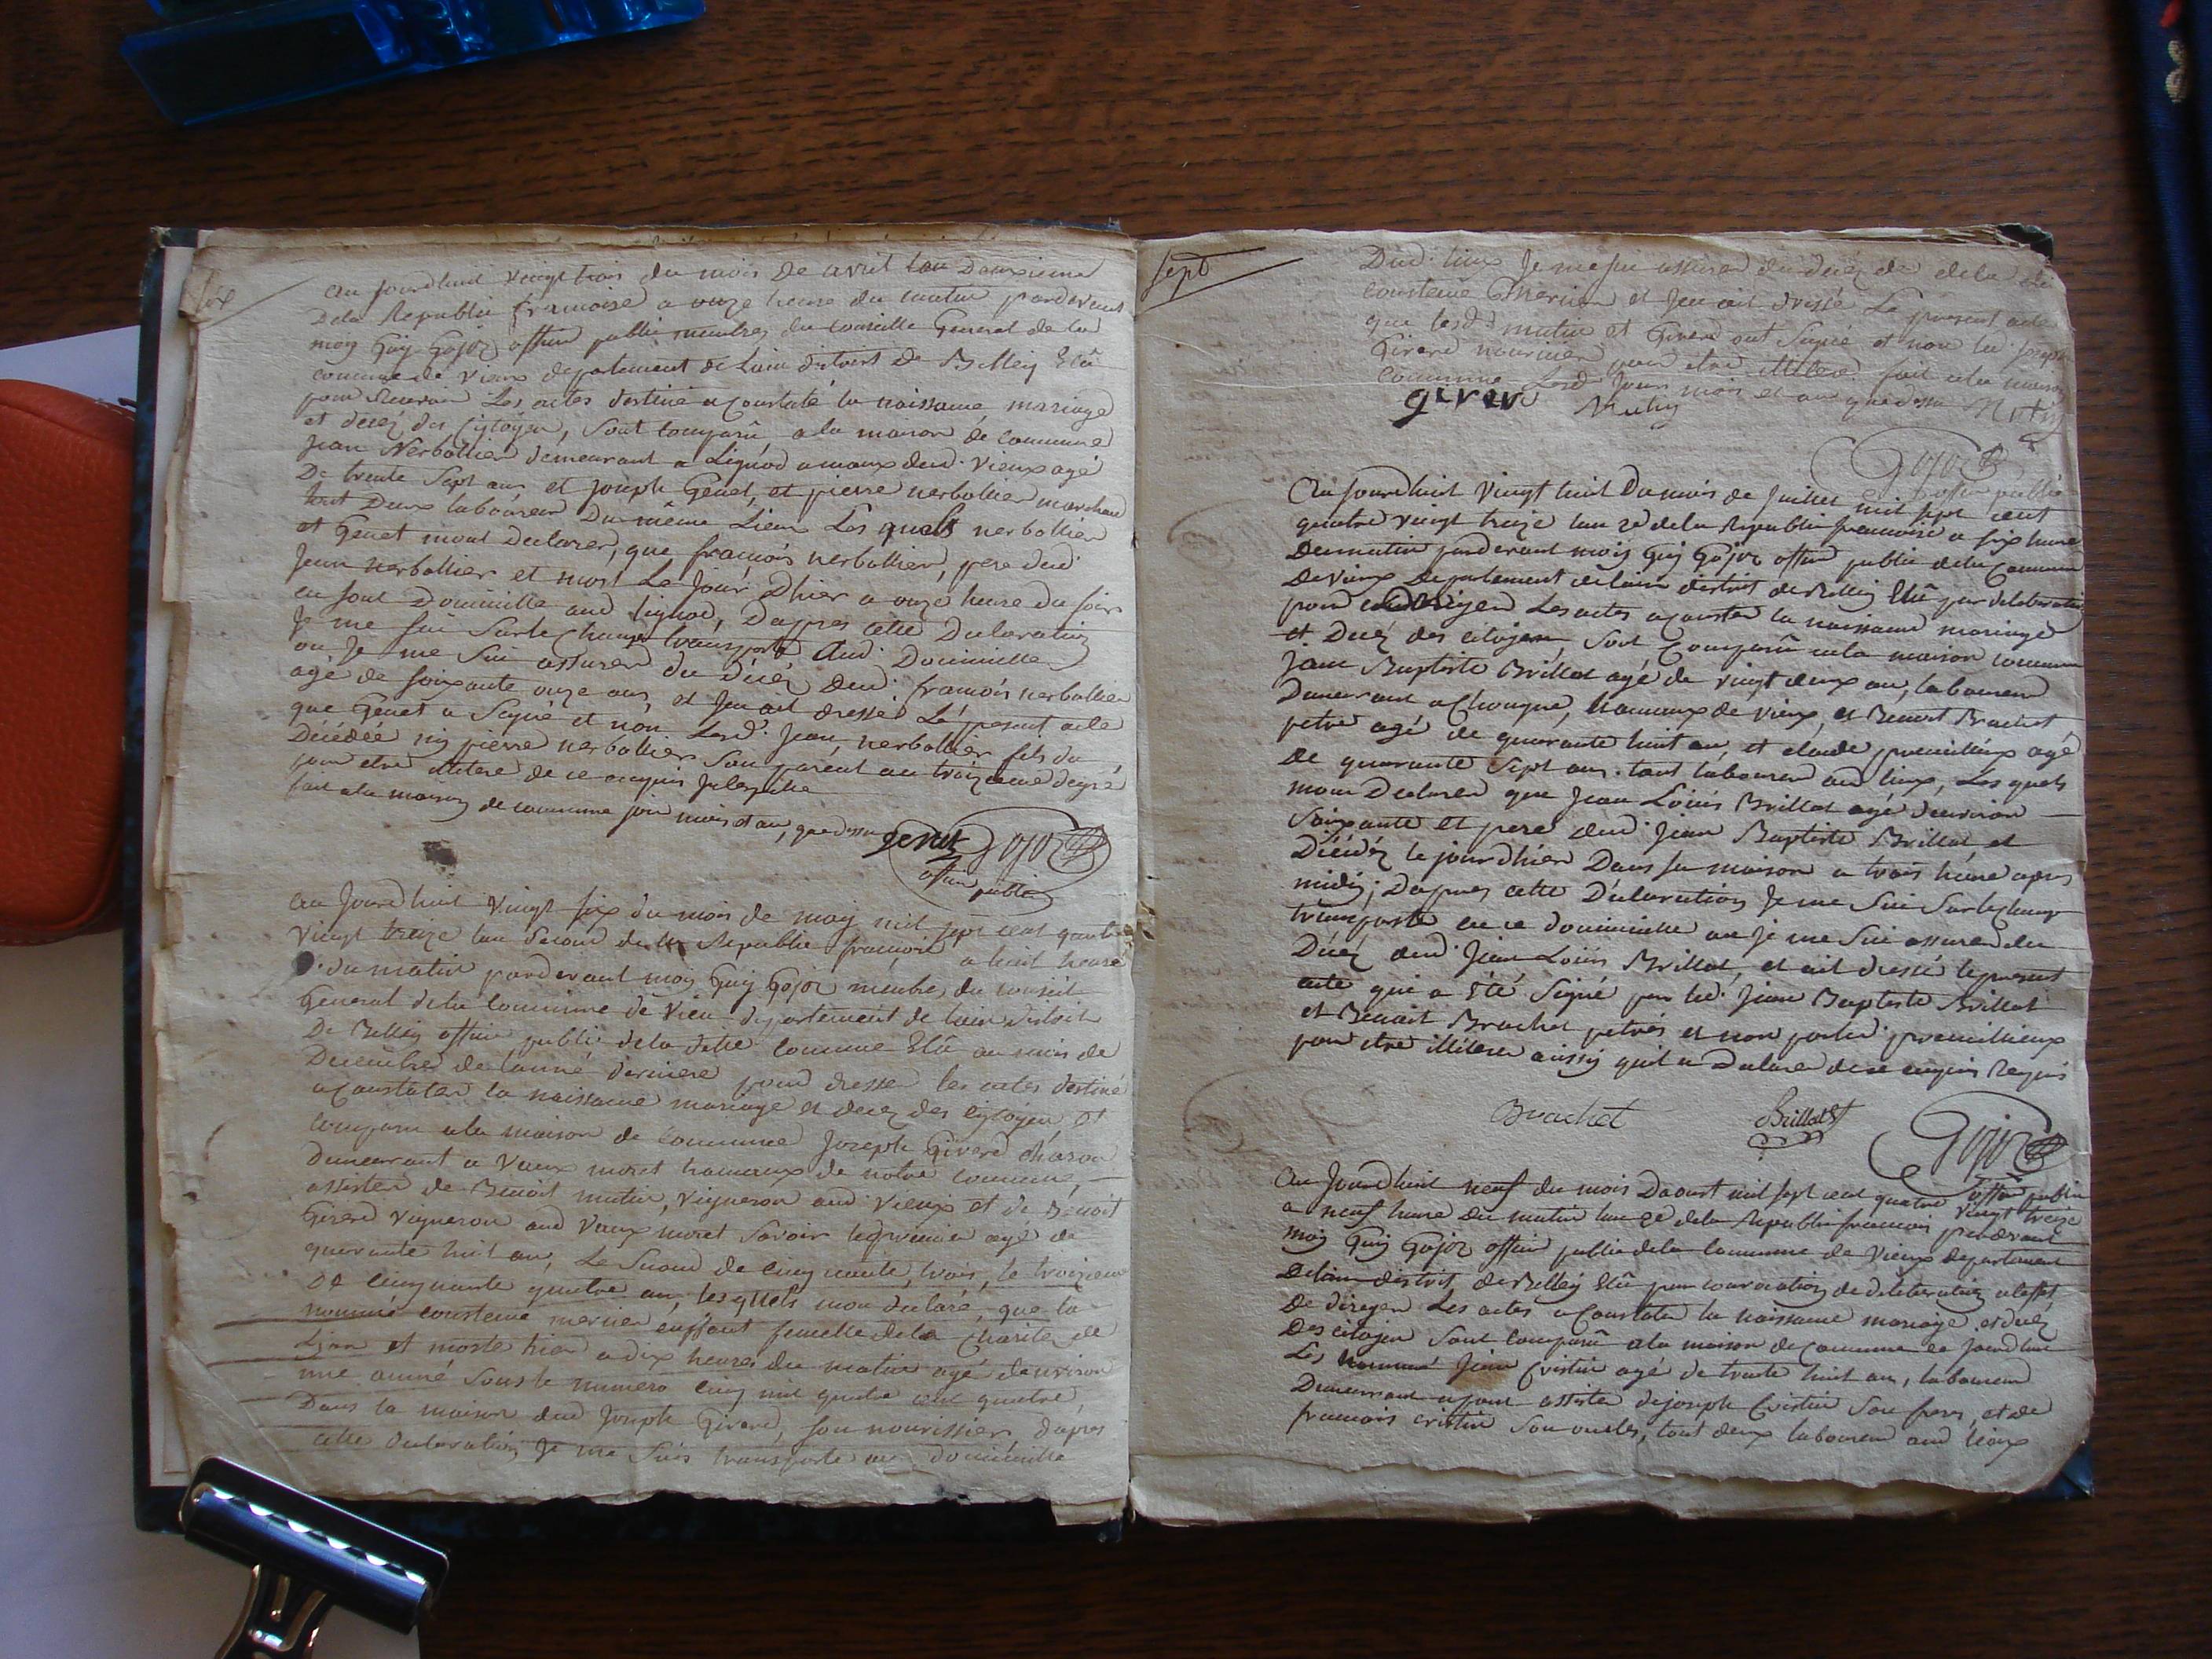 six
au jourdhuit vingt trois du mois de avril lan Deuxieme
Dela Republic francoise a onze heure du matin pardevent
moy Guy Gojoz officier public membres du conseille General de la
commune de Vieux departement de Lain district de Belley Elû
pour Recevoir Les actes destiné a Constaté la naissance mariage
et decéz des Citoyen, sont comparû a la maison de commune
Jean Nerbollier demeurant a Lignod amaux dud. Vieux agé
De trente Sept ans et Joseph Genet, et pierre nerbollier
tout Deux laboureur Du même Lieux Les quels nerbollier
et Genet mont Declarer, que francois nerbollier, pere dud
Jean nerbollier et mort Le Jour Dhier a onze heure du soir
en sont Domicille aud lignod, Dapres cette Declaration
Je me sui Surle Champ transporté Aud. Domicille
ou Je me Sui assurer du Décéz Dud. francois nerbollier
agé de soixante onze ans, et Jen ait dressé Le present acte
que Genet a Signé et non Lesd. Jean, nerbollier fils du
Décédée ny pierre nerbollier Son parent au troizieme degré
pour etre illitere de ce enquis
fait a la maison de commune jour mois et an que dessus
genet Gojoz
officier public
au Jourdhuit Vingt six du mois de may mil sept cent quatre
Vingt treize lan Second de la Republic francois a huit heure
du matin pardevant moy Guy Gojoz membres du conseil
General dela Commune de Vieu departement de Lain district
De Belley officier public dela ditte Commune Elû au mois de
Decembre de lanné derniere pour dresser les actes destiné
a Constater la naissance mariage et decez des Citoyen et
comparu ala maison de Commune Joseph Girerd charon
Demeurant a Vaux moret hameaux de notre Commune,
assister de Benoit mutin, Vigneron aud Vieux et de Benoit
Girerd Vigneron aud Vaux moret Savoir le premier agé de
quarante huit an, Le Second de Cinquante, trois, le troizieme
De Cinquante quatre an, les quels mon declaré, que la
nommé mercier enffant femelle dela Charite de
Lion et morte hier a dix heures du matin agé denviron
une anné Sous le numero Cinq mil quatre cent quatre,
Dans la maison dud Joseph Girerd, son nourissier, dapres
cette Declaration Je me Suis transporté au domicille
Sept
Dud. lieux Je me sui assurer du decéz de dela ditte
mercier et Jen ait dressé Le present acte
que lesd. mutin et Girerd ont Signé et non led. Joseph
Girerd nouricier pour etre illitere fait ala maison
commune Lesd. Jour mois et an que dessus
girerd Mutin
Gojoz
officier public
Au Jourdhuit Vingt huit Du mois de Juillet mil sept cent
quatre vingt treize lan 2e dela Republic francoise a six heure
Du matin pardevant moy Guy Gojoz officier public dela Commune
De Vieux Departement delain district de Belley Elû par deliberation
pour rediger Les actes a constater la naissance mariage
et Decéz des citoyen, sont Comparû ala maison commune
Jean Baptiste Brillat agé de vingt deux an, laboureur
Demeurant a Chongne, hameaux de Vieux, et Benoit Brachet
petre agé de quarante huit an, et claude agé
De quarante Sept ans. tout laboureur aud lieux, Les quels
mon Declarer que Jean Louis Brillat agé denviron
Soixante et pere dud Jean Baptiste Brillat et
Décédéz le jour dhier Dans sa maison a trois heure apres
midy; Dapres cette Declaration Je me Sui Sur le champ
transporté en ce domicille ou je me Sui assurer du
Décéz dud. Jean Louis Brillat, et ait dressé le present
acte qui a été Signé par led. Jean Baptiste Brillat
et Benoit Brachet petres et non par led.
pour etre illitere ainsy quil a Declaré de ce enquis Requis
Brachet Brillat
Gojoz
officier public
Au Jourdhuit neuf du mois Daoust mil sept cent quatre vingt treize
a neuf heure Du matin lan 2e dela Republic francois pardevant
moy Guy Gojoz officier public dela Commune de Vieux departement
Delain district, de Belley Elû par convocation de deliberation a leffet
De diriger Les actes a Constater la naissance mariage et decéz
Des citoyen Sont Comparû ala maison de Commune ce Jourdhui
Les nommé Jean Cristin agé de trente huit an, laboureur
Demeurant assister de joseph Cristin Son frere, et de
francois cristin Son oncles, tout deux laboureur aud lieux